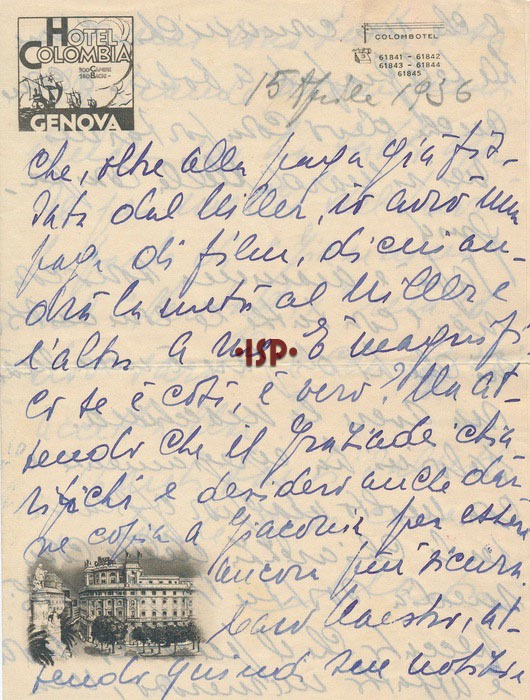 HOTEL
COLOMBIA
300 CAMERE
180 BAGNI
GENOVA
COLOMBOTEL
61841 - 61842
61843 - 61844
61845
15 Aprile 1936
che, oltre alla paga già fis-
sata dal Miller, io avrò una
paga di film, di cui an-
drà la metà al Miller e
l'altra a me. È magnifi
co se è così, è vero? Ma at-
tendo che il Graziadei chia
rifichi e desidero anche dar
ne copia a Giaconia per essere
ancora più sicura
Caro Maestro, at-
tendo quindi sue notizie
·ISP·